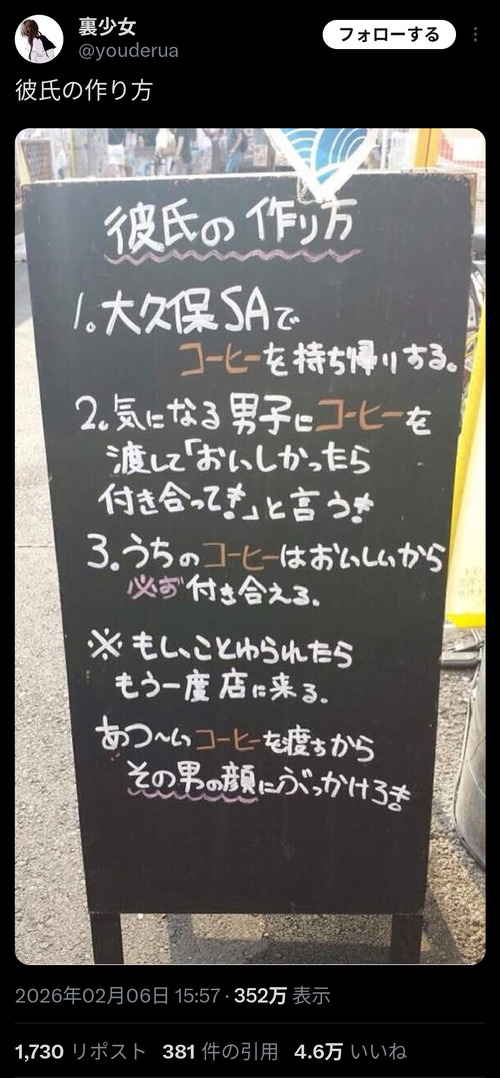 裏少女
@youderua
フォローする
彼氏の作り方
彼氏の作り方
1。大久保SAで
コーヒーを持ち帰りする。
2。気になる男子にコーヒーを
渡して「おいしかったら
付き合って!」と言う!
3.うちのコーヒーはおいしいから
必ず付き合える。
※もし、ことゆられたら
もう一度店に来る。
あつ~いコーヒーを渡すから
その男の顔にぶっかけろ!
2026年02月06日 15:57 · 352万 表示
1,730 リポスト 381 件の引用 4.6万 いいね